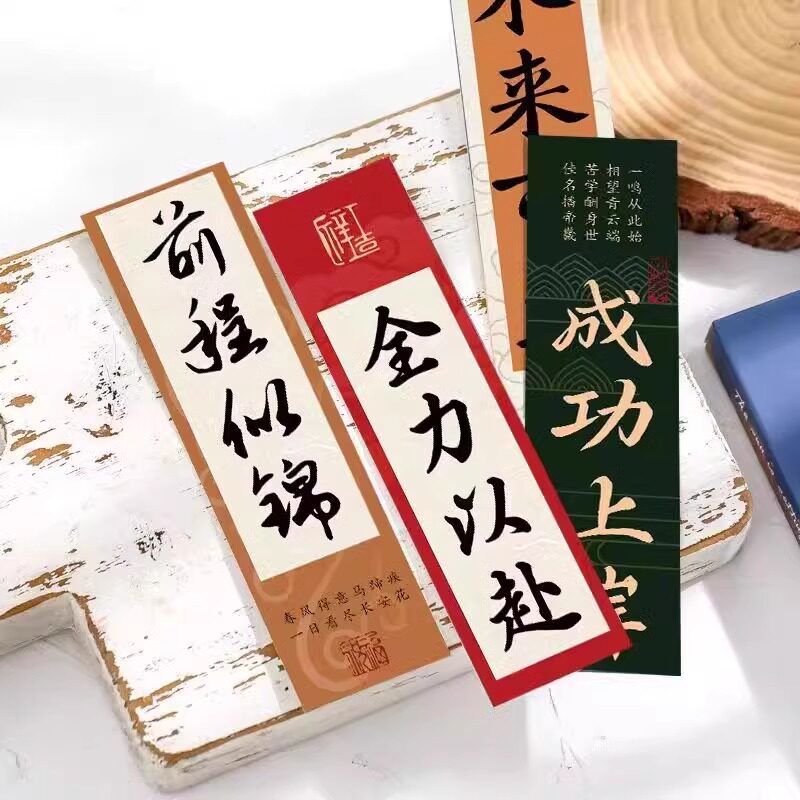 前程似锦
春风得意马蹄疾
一日看尽长安花
全力以赴
来
一鸣从此始
相望青云端
苦学酬身世
佳名播帝畿
成功上岸